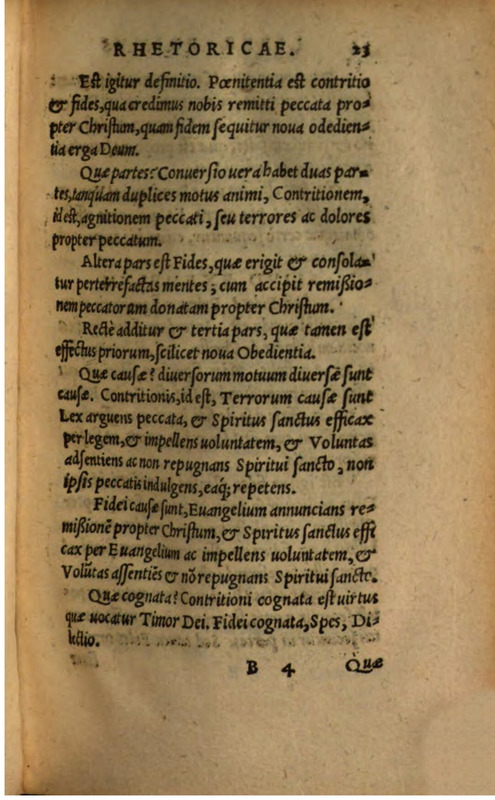 RHETORICAE. 23
Est igitur definitio. Pœnitentia est contritio
& fides, qua credimus nobis remitti peccata pro-
pter Christum, quam fidem sequitur noua odedien-
tia erga Deum.
Quæ partes? Conuersio uera habet duas par-
tes, tanquam duplices motus animi, Contritionem,
id est, agnitionem peccati, seu terrores ac dolores
propter peccatum.
Altera pars est Fides, quæ erigit & consola-
tur perterrefactas mentes, cum accipit remißio-
nem peccatorum donatam propter Christum.
Recte additur & tertia pars, quæ tamen est
effectus priorum, scilicet noua Obedientia.
Quæ causæ? diuersorum motuum diuersæ sunt
causæ. Contritionis, id est, Terrorum causæ sunt
Lex arguens peccata, & Spiritus sanctus efficax
per legem, & impellens uoluntatem, & Voluntas
adsentiens ac non repugnans Spiritui sancto, non
ipsis peccatis indulgens, eaq́; repetens.
Fidei causæ sunt, Euangelium annuncians re-
mißionē propter Christum, & Spiritus sanctus effi
cax per Euangelium ac impellens uoluntatem, &
Volūtas assentiēs & nō repugnans Spiritui sancto.
Quæ cognata? Contritioni cognata est uirtus
quæ uocatur Timor Dei. Fidei cognata, Spes, Di-
lectio.
B 4 Quæ